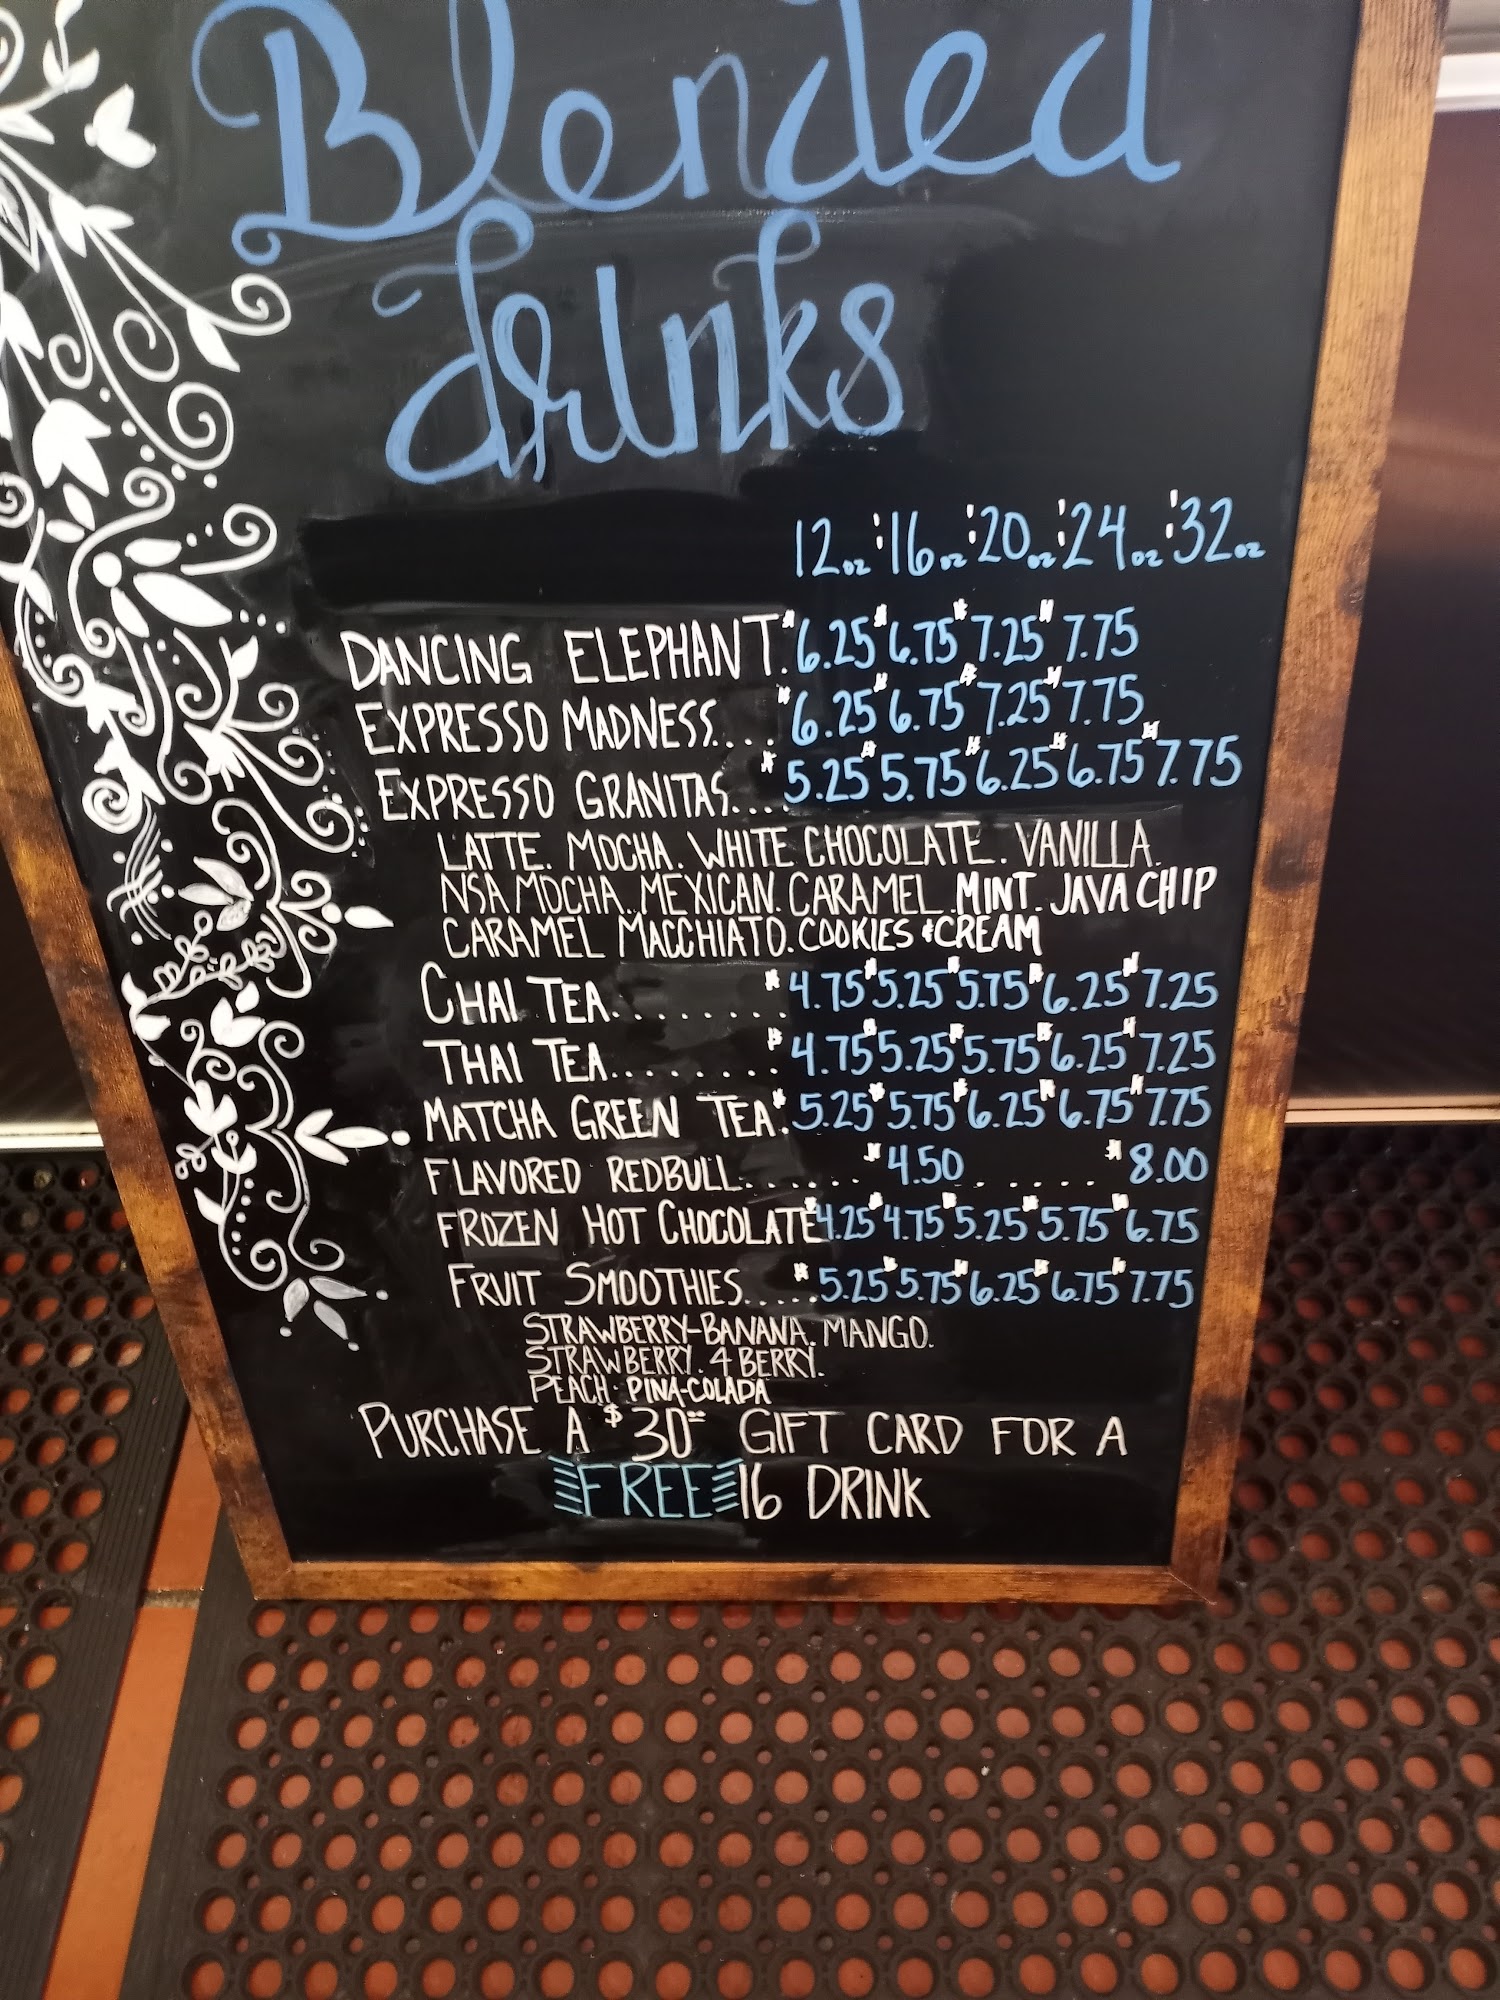 Blended
drinks
12oz 16oz 20oz 24oz 32oz
DANCING ELEPHANT. 6.25 6.75 7.25 7.75
EXPRESSO MADNESS.... 6.25 6.75 7.25 7.75
EXPRESSO GRANITAS.... 5.25 5.75 6.25 6.75 7.75
LATTE. MOCHA. WHITE CHOCOLATE. VANILLA.
NSA MOCHA. MEXICAN. CARAMEL. MINT. JAVA CHIP
CARAMEL MACCHIATO. COOKIES & CREAM
CHAI TEA........ 4.75 5.25 5.75 6.25 7.25
THAI TEA........ 4.75 5.25 5.75 6.25 7.25
MATCHA GREEN TEA. 5.25 5.75 6.25 6.75 7.75
FLAVORED REDBULL...... 4.50 ...... 8.00
FROZEN HOT CHOCOLATE 4.25 4.75 5.25 5.75 6.75
FRUIT SMOOTHIES..... 5.25 5.75 6.25 6.75 7.75
STRAWBERRY-BANANA. MANGO.
STRAWBERRY. 4 BERRY.
PEACH. PINA-COLADA
PURCHASE A $30 GIFT CARD FOR A
FREE 16 DRINK